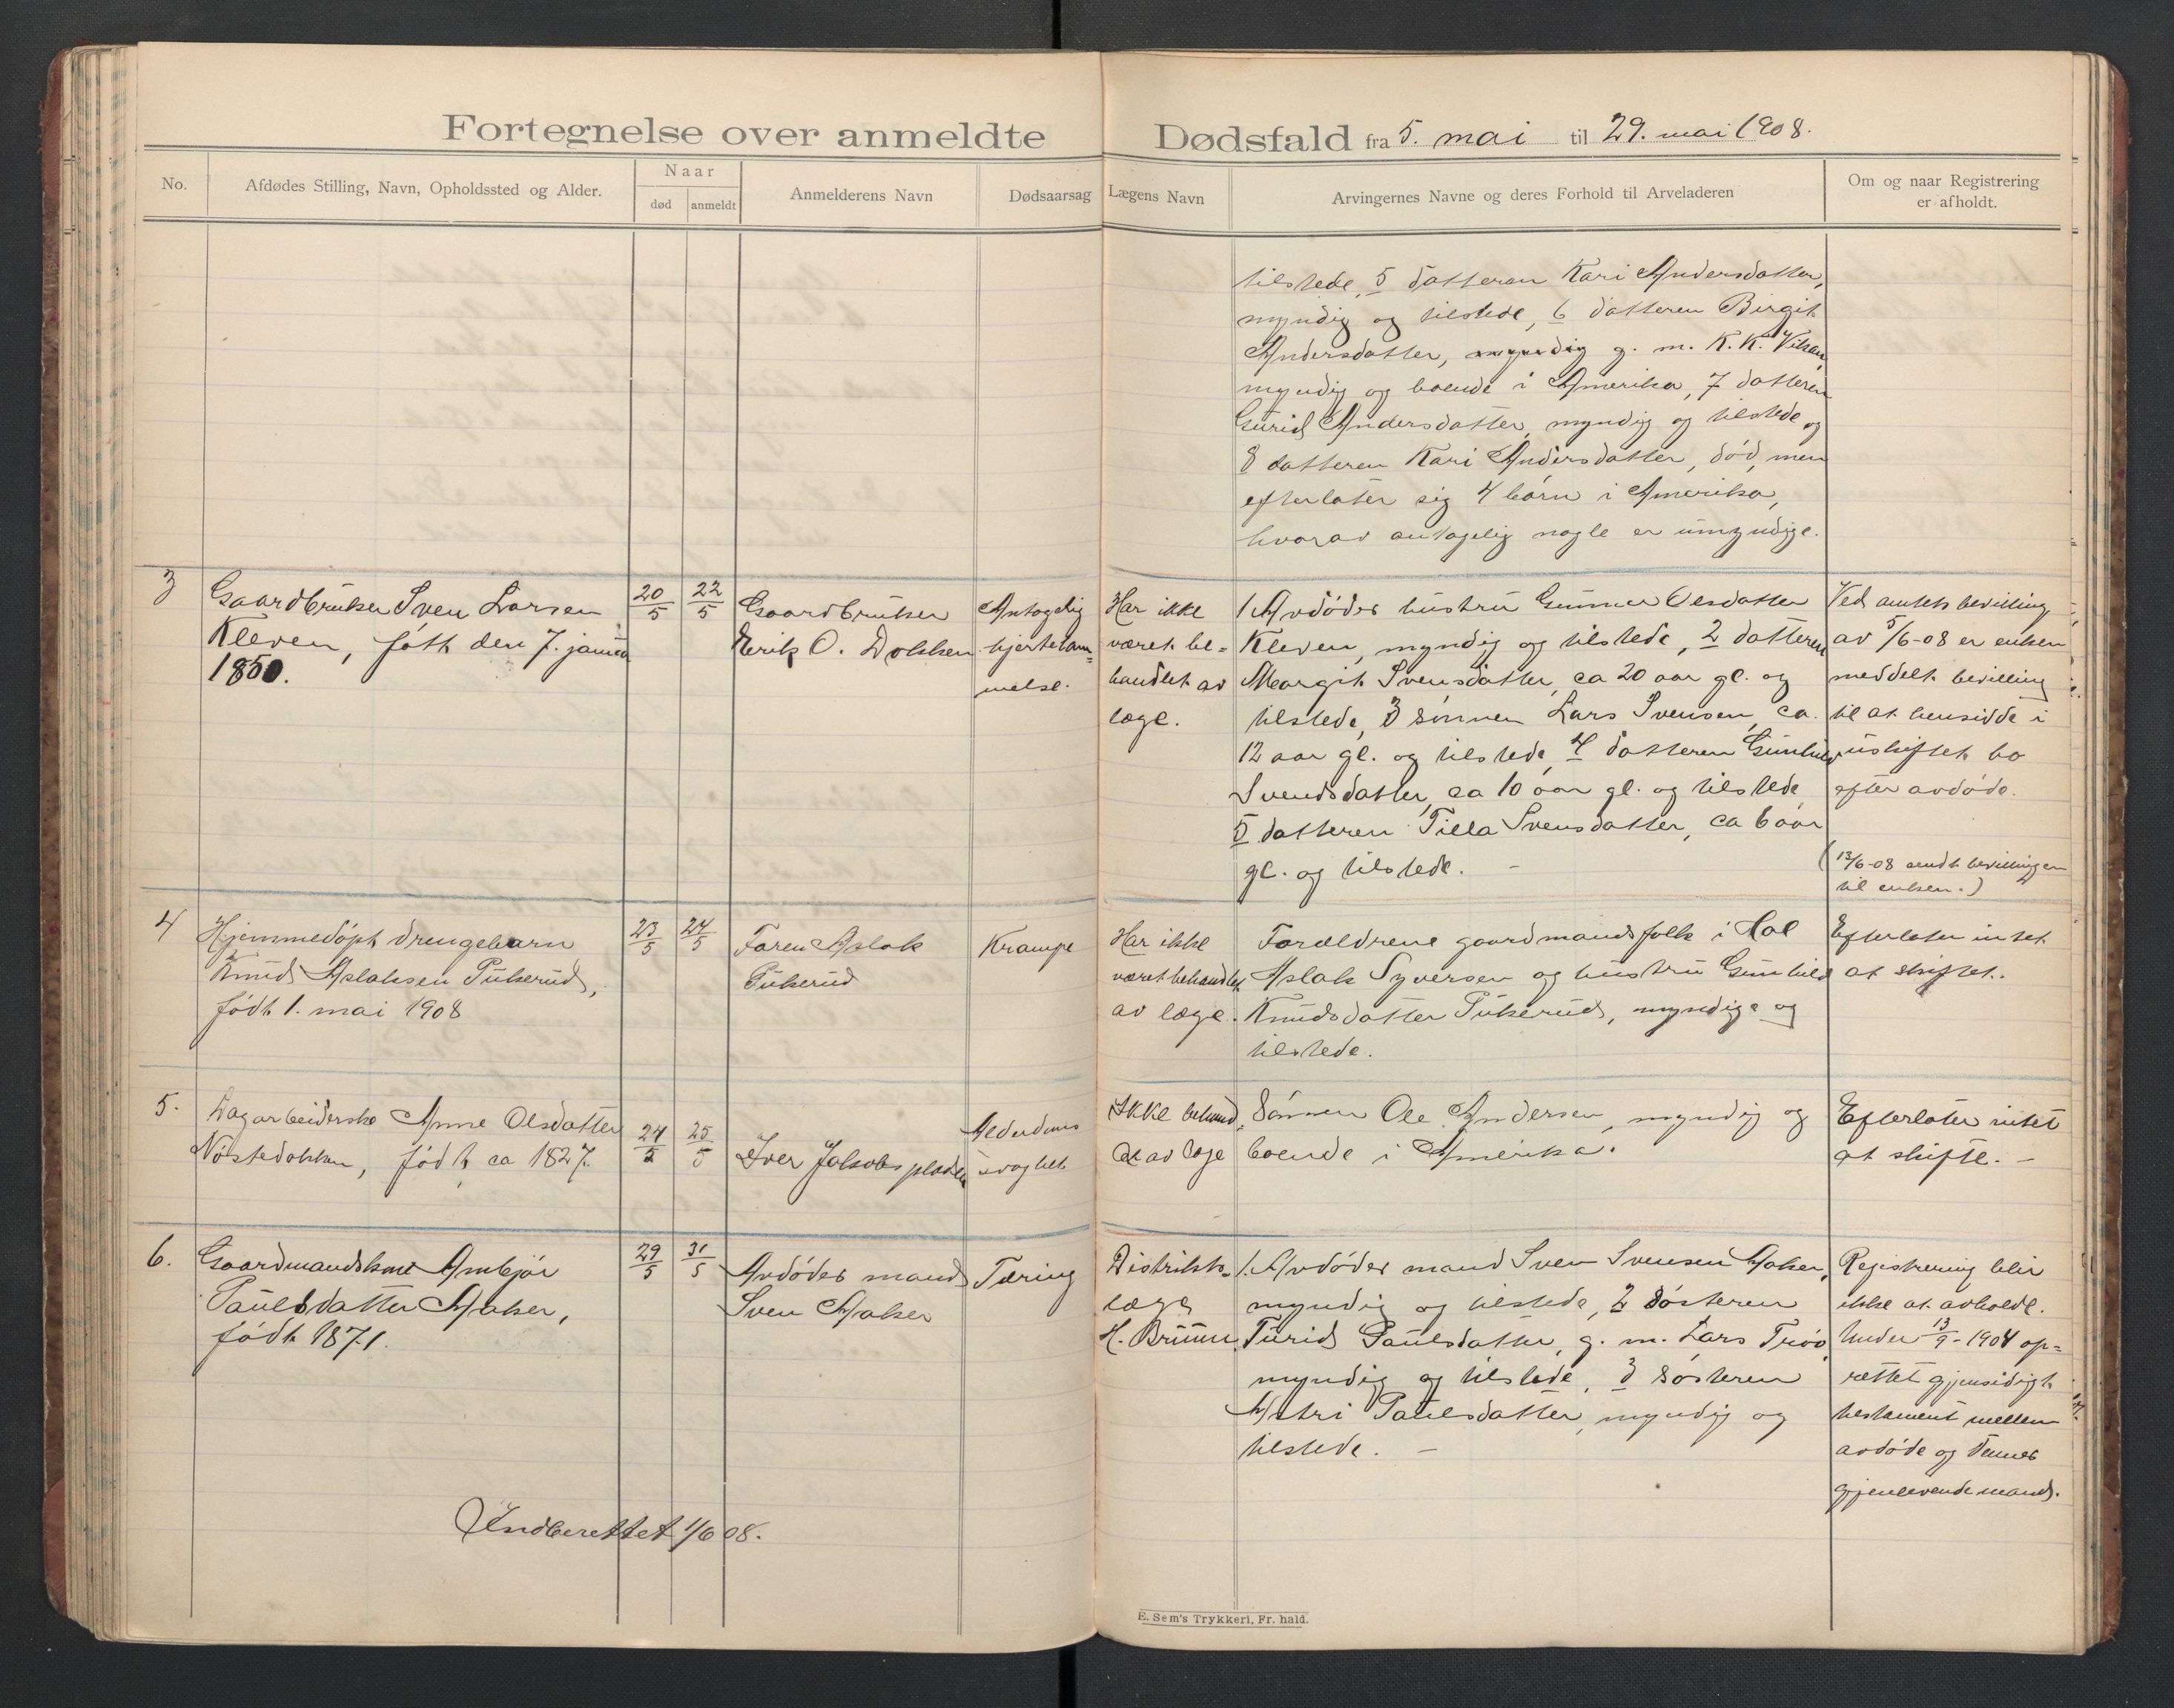 Fortegnelse over anmeldte Dødsfald fra 5. mai til 29. mai 1908.
No.
Afdødes Stilling, Navn, Opholdssted og Alder.
Naar
død
anmeldt
Anmelderens Navn
Dødsaarsag
Lægens Navn
Arvingernes Navne og deres Forhold til Arveladeren
Om og naar Registrering
er afholdt.
tilstede, 5 datteren Kari Andersdatter,
myndig og tilstede, 6 datteren Birgit
Andersdatter, myndig g. m. K. K. Vikan,
myndig og boende i Amerika, 7 datteren
Gurid Andersdatter, myndig og tilstede og
8 datteren Kari Andersdatter, død, men
efterlater sig 4 børn i Amerika,
hvorav antagelig nogle er umyndige.
3
Gaardbruker Sven Larsen
Kleven, født den 7. januar
1850.
20/5
22/5
Gaardbruker
Erik O. Dokken
Antagelig
hjertelam=
melse.
Har ikke
været be=
handlet av
læge.
1. Avdødes hustru Gunnor Olsdatter
Kleven, myndig og tilstede, 2 datteren
Margit Svensdatter, ca 20 aar gl. og
tilstede, 3 sønnen Lars Svensen, ca.
12 aar gl. og tilstede, 4 datteren Gunhild
Svendsdatter, ca 10 aar gl. og tilstede,
5 datteren Tilla Svensdatter, ca 6 aar
gl. og tilstede. –
Ved amtets bevilling
av 5/6-08 er enken
meddelt bevilling
til at hensidde i
uskiftet bo
efter avdøde.
(13/6-08 sendt bevillingen
til enken.)
4
Hjemmedøpt drengebarn
Knud Aslaksen Pukerud,
født 1. mai 1908
23/5
24/5
Faren Aslak
Pukerud
Krampe
Har ikke
været behandlet
av læge.
Forældrene gaardmandsfolk i Hol
Aslak Syversen og hustru Gunhild
Knudsdatter Pukerud, myndige og
tilstede.
Efterlater intet
at skiftet.
5.
Dagarbeiderske Anne Olsdatter
Nøstedokken, født ca 1827.
24/5
25/5
Iver Jakobsplads
Alderdoms
svaghet
Ikke behand
let av læge
Sønnen Ole Andersen, myndig og
boende i Amerika.
Efterlater intet
at skifte. –
6.
Gaardmandskone Ambjør
Paulsdatter Aaker,
født 1871.
29/5
31/5
Avdødes mand
Sven Aaker
Tæring
Distrikts=
læge
H. Bruun.
1. Avdødes mand Sven Svensen Aaker,
myndig og tilstede, 2 søsteren
Turid Paulsdatter, g. m. Lars
myndig og tilstede, 3 søsteren
Astri Paulsdatter, myndig og
tilstede. –
Registrering blir
ikke at avholde.
Under 13/9-1904 op=
rettet gjensidigt
testament mellem
avdøde og dennes
gjenlevende mand.
Indberettet 1/6 08.
E. Sem's Trykkeri, Fr. hald.